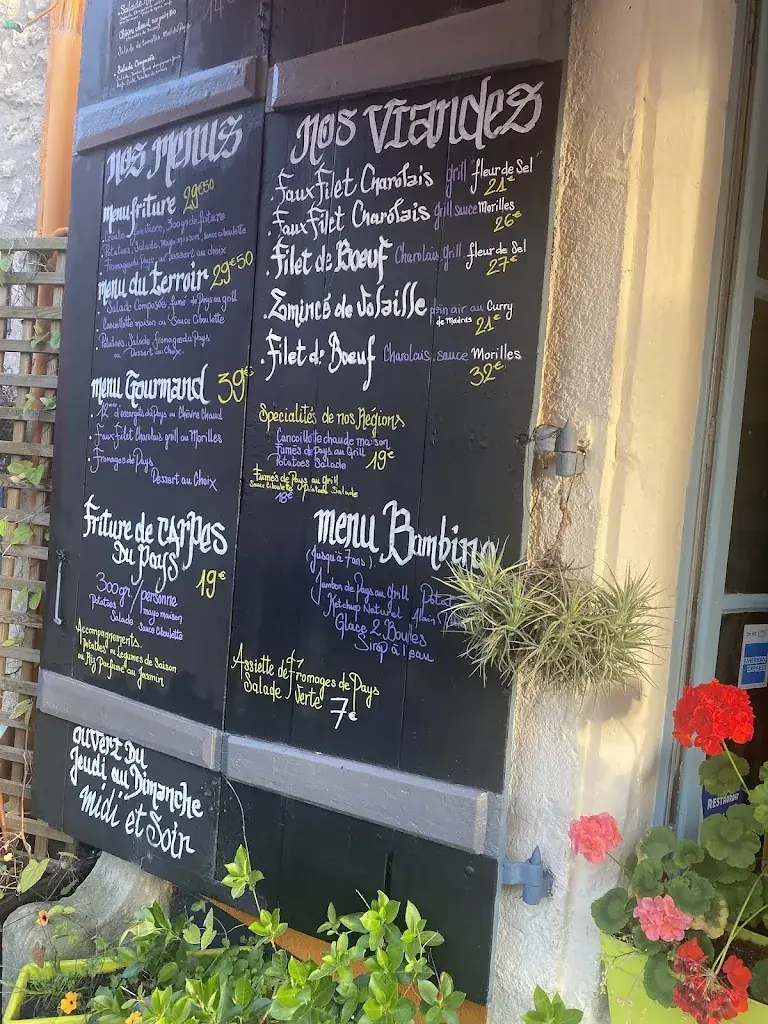 Salade
Salade Composée
Nos Menus
menu friture 29€50
friture
Potatoes, Salade, mayo maison, sauce ciboulette
Fromage du Pays ou Dessert au choix
menu du Terroir 29€50
Salade Composée fumé du Pays au grill
Cancoillotte maison ou Sauce Ciboulette
Potatoes, Salade, fromage du Pays
ou Dessert au Choix.
menu Gourmand 39€
12 d'escargots du Pays ou Chèvre Chaud
Faux Filet Charolais grill ou Morilles
Fromages du Pays
Dessert au Choix
friture de CARPES
Du Pays 19€
300gr/personne
Potatoes mayo maison
Salade Sauce Ciboulette
Accompagnements.
Potatoes ou Légumes de Saison
ou Riz Parfumé au Jasmin
ouvert Du
Jeudi au Dimanche
midi et Soir
Nos Viandes
. Faux Filet Charolais grill "fleur de Sel"
21€
. Faux Filet Charolais grill sauce Morilles
26€
. Filet de Boeuf Charolais grill fleur de Sel
27€
. Emincé de Volaille plein air au Curry
de Madras 21€
. Filet de Boeuf Charolais, sauce Morilles
32€
Spécialités de nos Régions
Cancoillote chaude maison
Fumés de Pays au Grill 19€
Potatoes Salade
Fumés de Pays au Grill
Sauce Ciboulette Potatoes Salade
18€
menu Bambino
(Jusqu'à 7 ans).
Jambon de Pays au Grill
Ketchup Naturel Alain
Glace 2 Boules
Sirop à l'eau
Assiette de Fromages de Pays
Salade Verte 7€
AMERICAN
EXPRESS
RESTAURANT